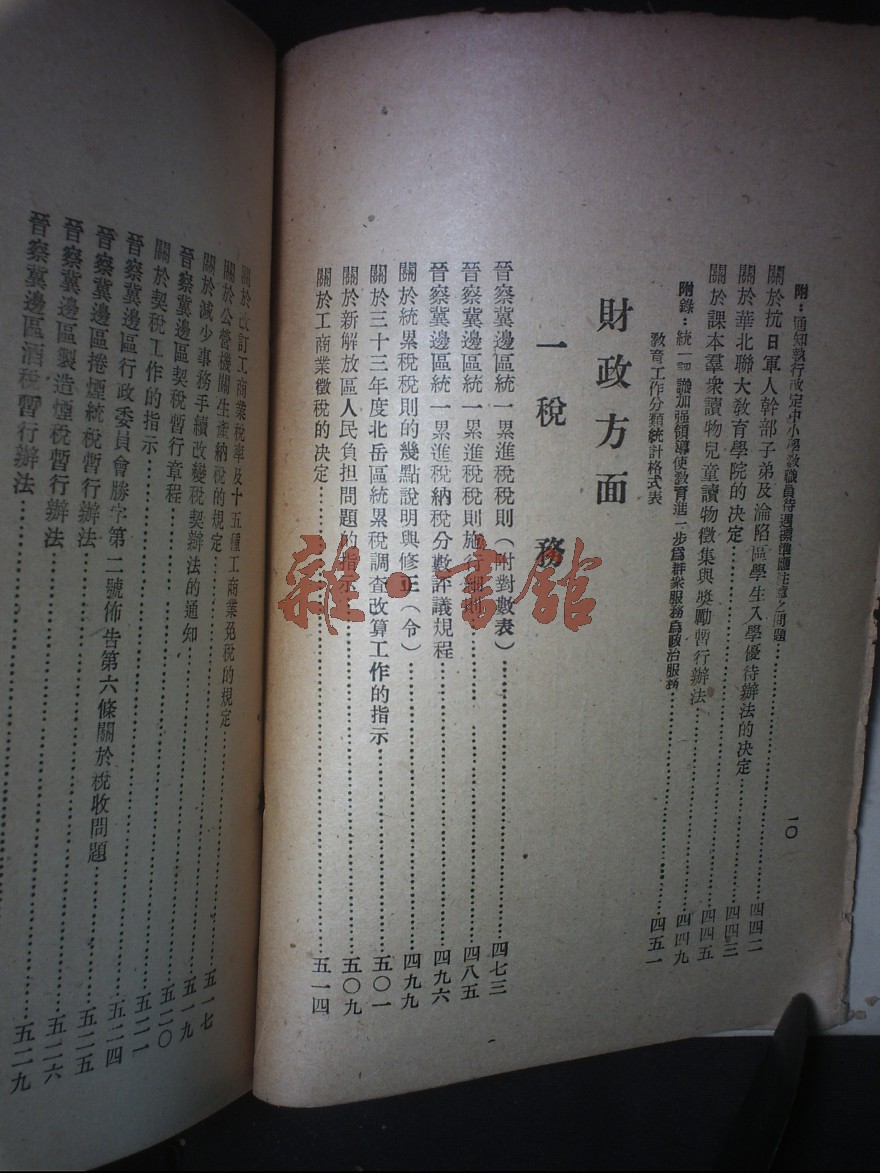 附：通知執行改定中小學教職員待遇標準關註等之問題
關於抗日軍人幹部子弟及淪陷區學生入學優待辦法的決定……四四二
關於華北聯大教育學院的決定……四四三
關於課本羣衆讀物兒童讀物徵集與獎勵暫行辦法……四四五
附錄：統一認識加强領導使教育進一步爲群衆服務爲政治服務……四四九
教育工作分類統計格式表……四五一
一〇
財政方面
一 稅 務
晉察冀邊區統一累進稅稅則（附對數表）……四七三
晉察冀邊區統一累進稅稅則施行細則……四八五
晉察冀邊區統一累進稅納稅分數評議規程……四九六
關於統累稅稅則的幾點說明與修正（令）……四九九
關於三十三年度北岳區統累稅調查改算工作的指示……五〇一
關於新解放區人民負担問題的指示……五〇九
關於工商業徵稅的决定……五一四
關於改訂工商業稅率及十五種工商業免稅的規定
關於公營機關生產納稅的規定……五一七
關於減少事務手續改變稅契辦法的通知……五一九
晉察冀邊區契稅暫行章程……五二〇
關於契稅工作的指示……五二一
晉察冀邊區行政委員會勝字第二號佈告第六條關於稅收問題……五二四
晉察冀邊區捲煙統稅暫行辦法……五二五
晉察冀邊區製造煙稅暫行辦法……五二六
晉察冀邊區酒稅暫行辦法……五二九
雜·書館